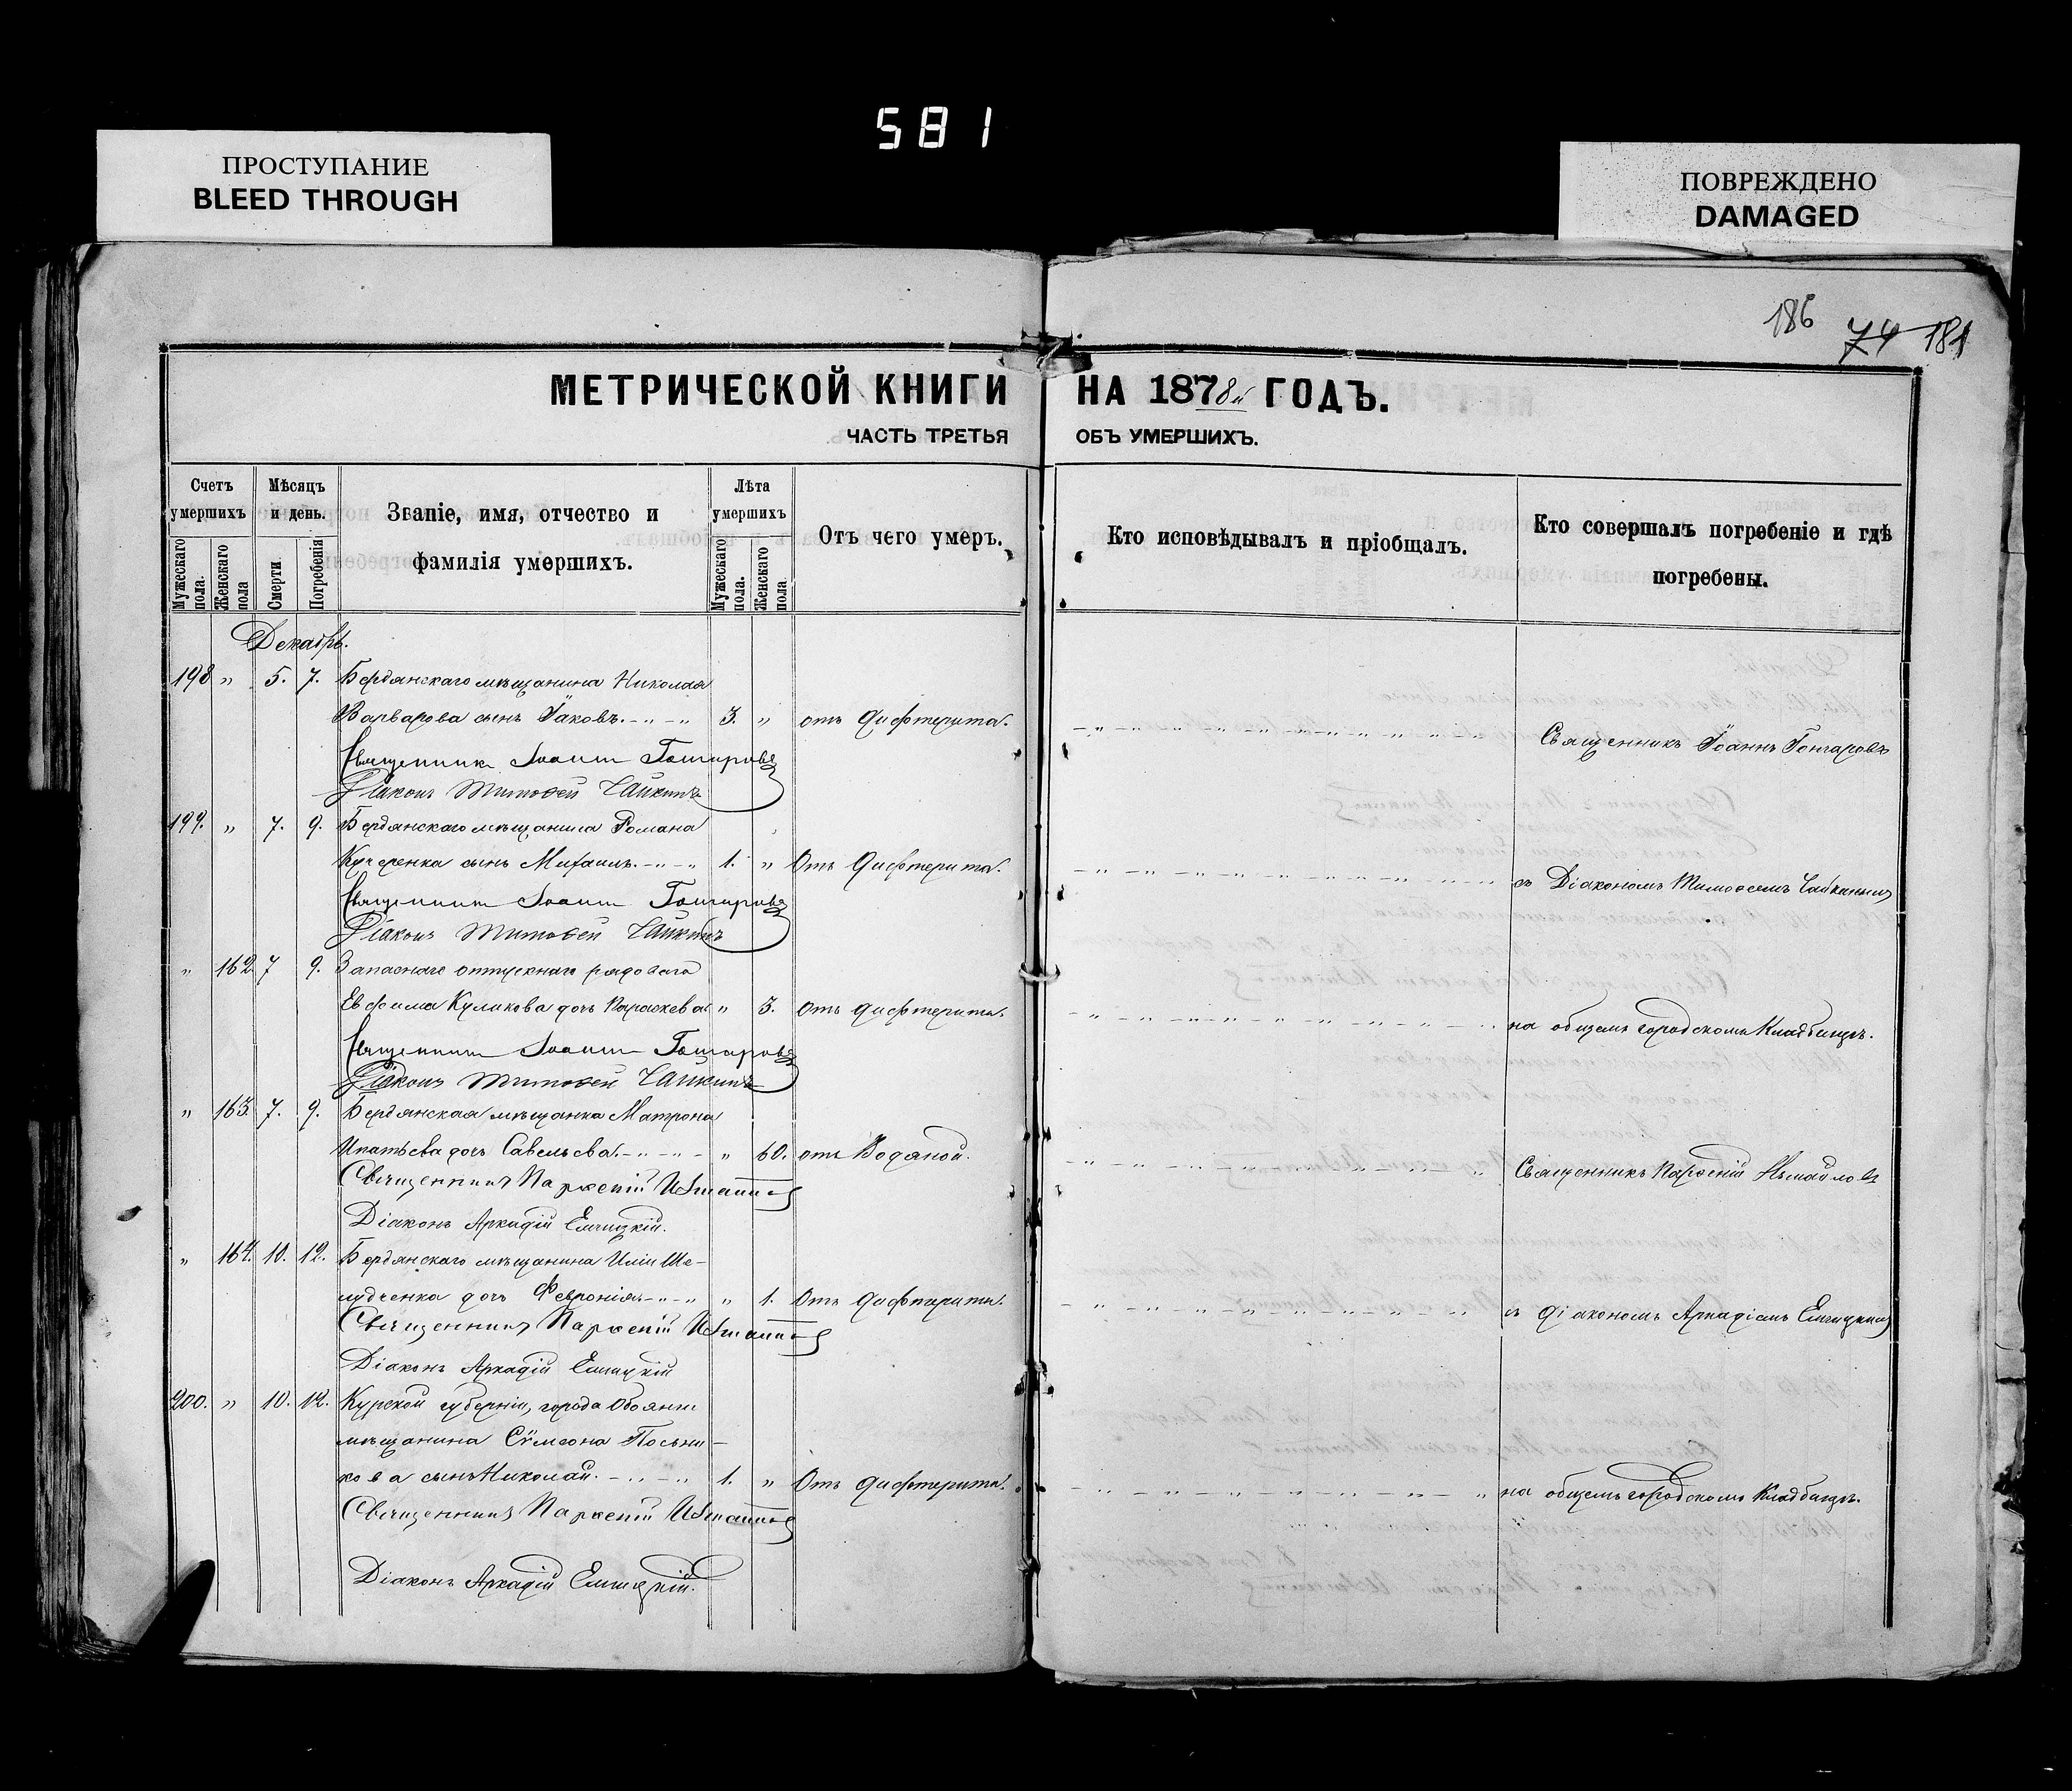 581
ПРОСТУПАНИЕ
BLEED THROUGH
ПОВРЕЖДЕНО
DAMAGED
186 74 181
МЕТРИЧЕСКОЙ КНИГИ НА 1878й ГОДЪ.
ЧАСТЬ ТРЕТЬЯ ОБЪ УМЕРШИХЪ.
Счетъ умершихъ
Мужескаго пола.
Женскаго пола
Мѣсяцъ и день.
Смерти.
Погребенія
Званіе, имя, отчество и
фамилія умершихъ.
Лѣта умершихъ
Мужескаго пола.
Женскаго пола
Отъ чего умеръ.
Кто исповѣдывалъ и пріобщалъ.
Кто совершалъ погребеніе и гдѣ
погребены.
Декабрь.
198 " 5. 7. Бердянскаго мѣщанина Николая
Варварова сынъ Іаковъ. 3. " отъ дифтерита. Священникъ Іоаннъ Гончаровъ
Священникъ Іоаннъ Гончаровъ
Діаконъ Тимофей Чайкинъ
199. " 7. 9. Бердянскаго мѣщанина Романа
Кучеренка сынъ Михаилъ. 1. " Отъ дифтерита. съ Діакономъ Тимофеемъ Чайкинымъ
Священникъ Іоаннъ Гончаровъ
Діаконъ Тимофей Чайкинъ
" 162 7 9. Запаснаго отпускнаго рядоваго
Евфима Куликова дочь Параскева " 3. Отъ дифтерита. на общемъ городскомъ Кладбищѣ.
Священникъ Іоаннъ Гончаровъ
Діаконъ Тимофей Чайкинъ
" 163. 7. 9. Бердянская мѣщанка Матрона
Ипатьева дочь Савельева. " 60. отъ Водяной. Священникъ Парѳеній Измайловъ
Священникъ Парѳеній Измайловъ
Діаконъ Аркадій
" 164. 10. 12. Бердянскаго мѣщанина Иліи Ше-
лудченка дочь Февронія. " 1. Отъ дифтерита. съ діакономъ Аркадіемъ
Священникъ Парѳеній Измайловъ
Діаконъ Аркадій
200. " 10. 12. Курской губерніи, города Обояни
мѣщанина Сѵмеона
кова сынъ Николай. 1. " Отъ дифтерита. на общемъ городскомъ Кладбищѣ.
Священникъ Парѳеній Измайловъ
Діаконъ Аркадій